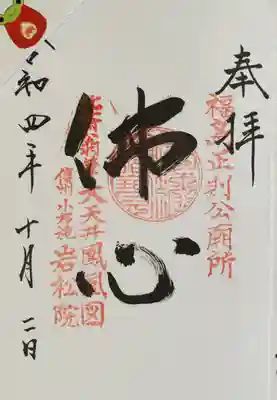 奉拝
福島正利公廟所
佛心
大天井鳳凰図
信州小布施
岩松院
令和四年十月二日